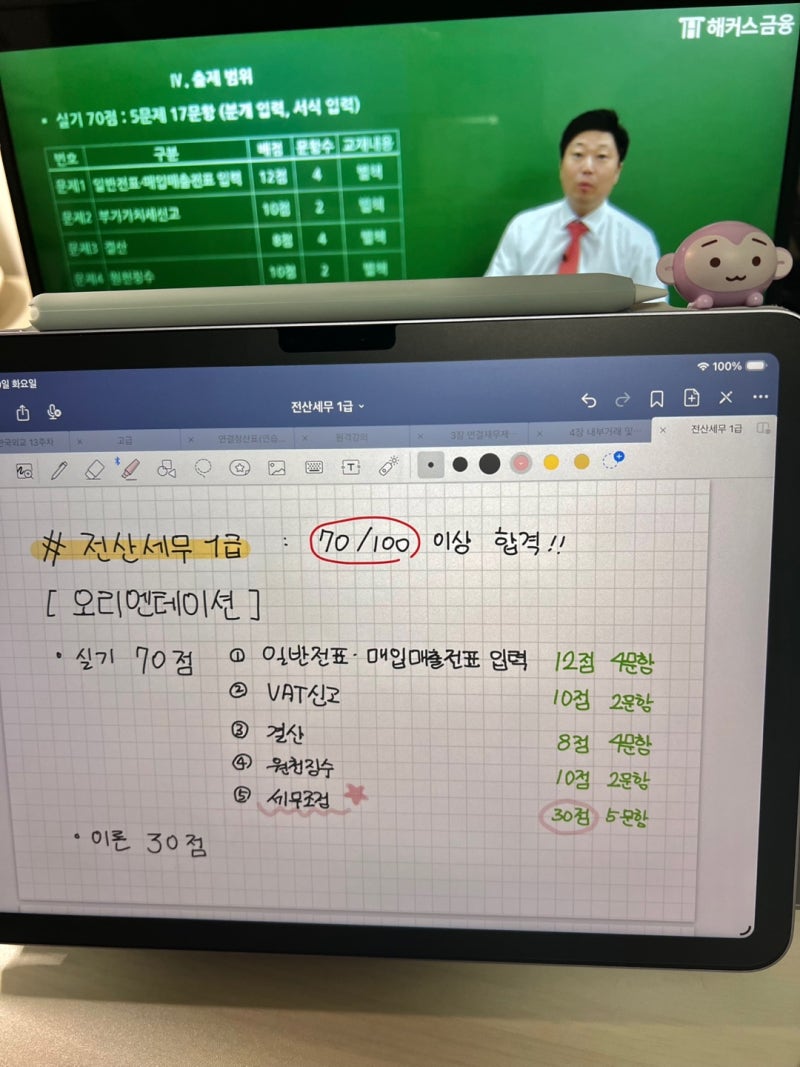 해커스금융
Ⅳ. 출제 범위
• 실기 70점 : 5문제 17문항 (분개 입력, 서식 입력)
번호 구분 배점 문항수 교재내용
문제1 일반전표·매입매출전표 입력 12점 4 별책
문제2 부가가치세신고 10점 2 별책
문제3 결산 8점 4 별책
문제4 원천징수 10점 2 별책
일 화요일
100%
전산세무 1급
한국외교 13주차 고급 연결정산표(연습... 원격강의 3장 연결재무제... 4장 내부거래 및... 전산세무 1급
# 전산세무 1급 : 70/100 이상 합격!!
[ 오리엔테이션 ]
• 실기 70점 ① 일반전표·매입매출전표 입력 12점 4문항
② VAT신고 10점 2문항
③ 결산 8점 4문항
④ 원천징수 10점 2문항
⑤ 세무조정 30점 5문항
• 이론 30점